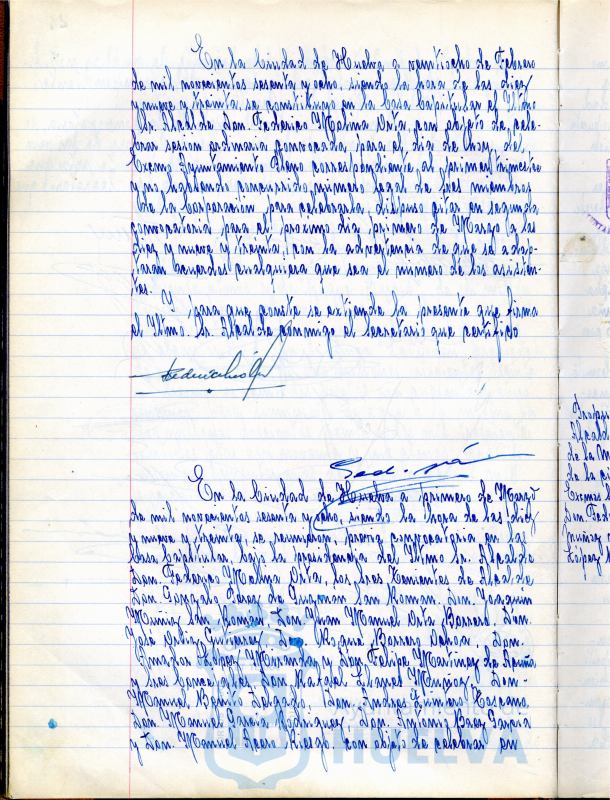 En la Ciudad de Huelva a veintiocho de Febrero
de mil novecientos sesenta y ocho, siendo la hora de las diez
y nueve y treinta, se constituyó en la Casa Capitular el Iltmo
Sr. Alcalde Don. Federico Molina Orta, con objeto de cele-
brar sesion ordinaria convocada para el dia de hoy, del
Excmo Ayuntamiento Pleno correspondiente al primer trimestre
y no habiendo concurrido número legal de Sres miembros
de la Corporación para celebrarla, dispuso citar en segunda
convocatoria para el proximo dia primero de Marzo a las
diez y nueve y treinta, con la advertencia de que se adop-
tarán acuerdos cualquiera que sea el número de los asisten-
tes.
Y para que conste se extiende la presente que firma
el Iltmo. Sr. Alcalde conmigo el Secretario que certifico
En la Ciudad de Huelva a primero de Marzo
de mil novecientos sesenta y ocho, siendo la hora de las diez
y nueve y treinta, se reunieron, previa convocatoria en las
Casa Capitular, bajo la presidencia del Iltmo Sr. Alcalde
Don. Federico Molina Orta, los Sres Tenientes de Alcalde
Don Gonzalo Perez de Guzman San Roman. Don. Joaquin
Muñiz San Roman. Don Juan Manuel Orta Barrero. Don.
José Ortiz Gutierrez. Don Roque Barrero. Don.
Amador López Miranda y Don. Felipe Martinez de Acuña
y Sres Concejales Don Rafael. Don-
Manuel Benito Delgado. Don. Andres Quintero Toscano.
Don Manuel Garcia Rodriguez. Don. Antonio Baez Garcia
y Don. Manuel Acero Riesgo. con objeto de celebrar en
HUELVA
Alcald
de la
de la
Excmos
Don Fed
López